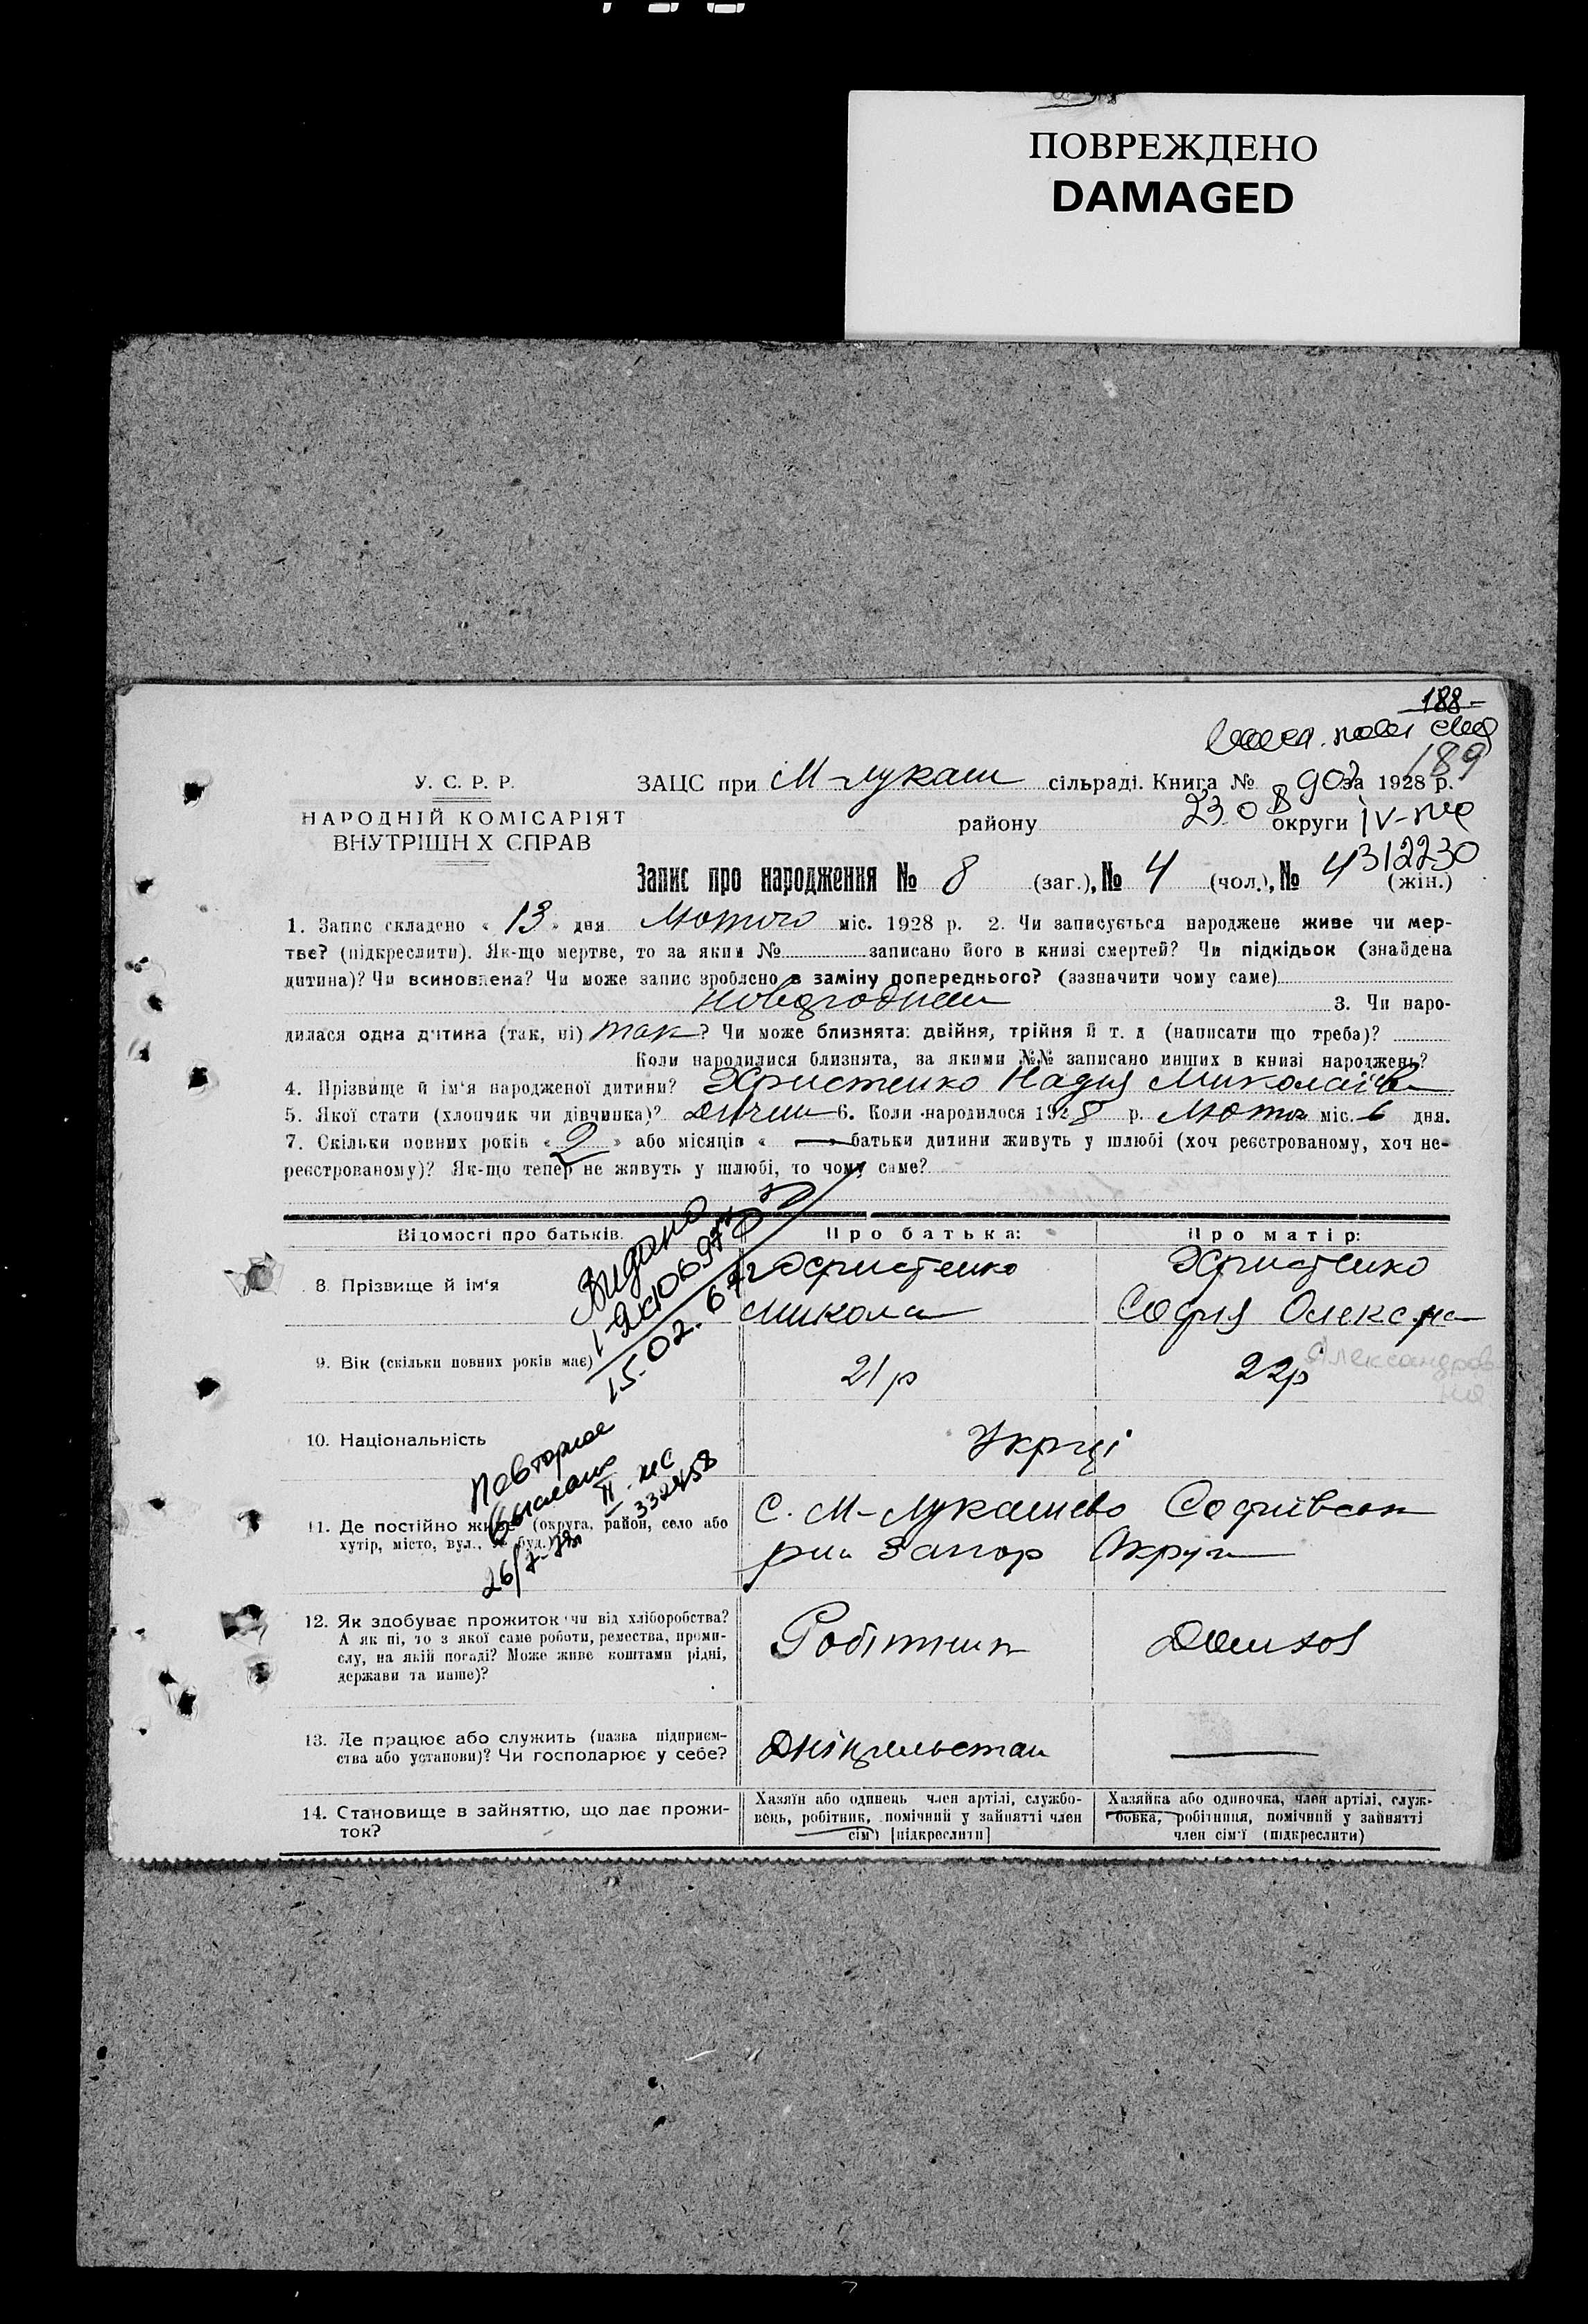 ПОВРЕЖДЕНО
DAMAGED
188
189
У. С. Р. Р.
НАРОДНІЙ КОМІСАРІЯТ
ВНУТРІШН Х СПРАВ
ЗАЦС при М-лукаш сільраді. Книга № за 1928 р.
району округи
4312230
Запис про народження № 8 (заг.), № 4 (чол.), № 4 (жін.)
1. Запис складено « 13 » дня Лютого міс. 1928 р. 2. Чи записується народжене живе чи мер-
тве? (підкреслити). Як-що мертве, то за яким № записано його в книзі смертей? Чи підкідьок (знайдена
дитина)? Чи всиновлена? Чи може запис зроблено в заміну попереднього? (зазначити чому саме)
3. Чи наро-
дилася одна дитина (так, ні) так ? Чи може близнята: двійня, трійня й т. д (написати що треба)?
Коли народилися близнята, за якими №№ записано инших в книзі народжень?
4. Прізвище й ім'я народженої дитини? Христенко Надия Миколаївн
5. Якої стати (хлопчик чи дівчинка)? 6. Коли народилося 1928 р. Лютого міс. 6 дня.
7. Скільки повних років « 2 » або місяців « — » батьки дитини живуть у шлюбі (хоч реєстрованому, хоч не-
реєстрованому)? Як-що тепер не живуть у шлюбі, то чому саме?
Відомості про батьків. Про батька: Про матір:
Видано
15.02.
8. Прізвище й ім'я Христенко Христенко
Микола София Олександ
9. Вік (скільки повних років має) 21 р 22р
Александров
на
10. Національність Укрці
Повторное
выслано
II - ЖС
332458
26/7-79г
11. Де постійно живе (округа, район, село або С. М-Лукашево Софиівськ
хутір, місто, вул., № буд.)? рии Запор Округи
12. Як здобуває прожиток чи від хліборобства? Робітник Домхоз
А як ні, то з якої саме роботи, ремества, проми-
слу, на якій посаді? Може живе коштами рідні,
держави та инше)?
13. Де працює або служить (назва підприєм- —
ства або установи)? Чи господарює у себе?
14. Становище в зайняттю, що дає прожи-
ток?
Хазяїн або одинець член артілі, службо-
вець, робітник, помічний у зайнятті член
сім'ї [підкреслити]
Хазяйка або одиночка, член артілі, служ-
бовка, робітниця, помічний у зайнятті
член сім'ї (підкреслити)